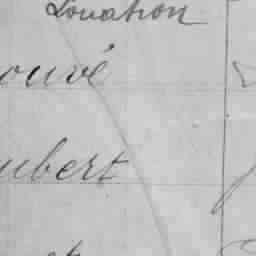 Louation
ouvé
ubert